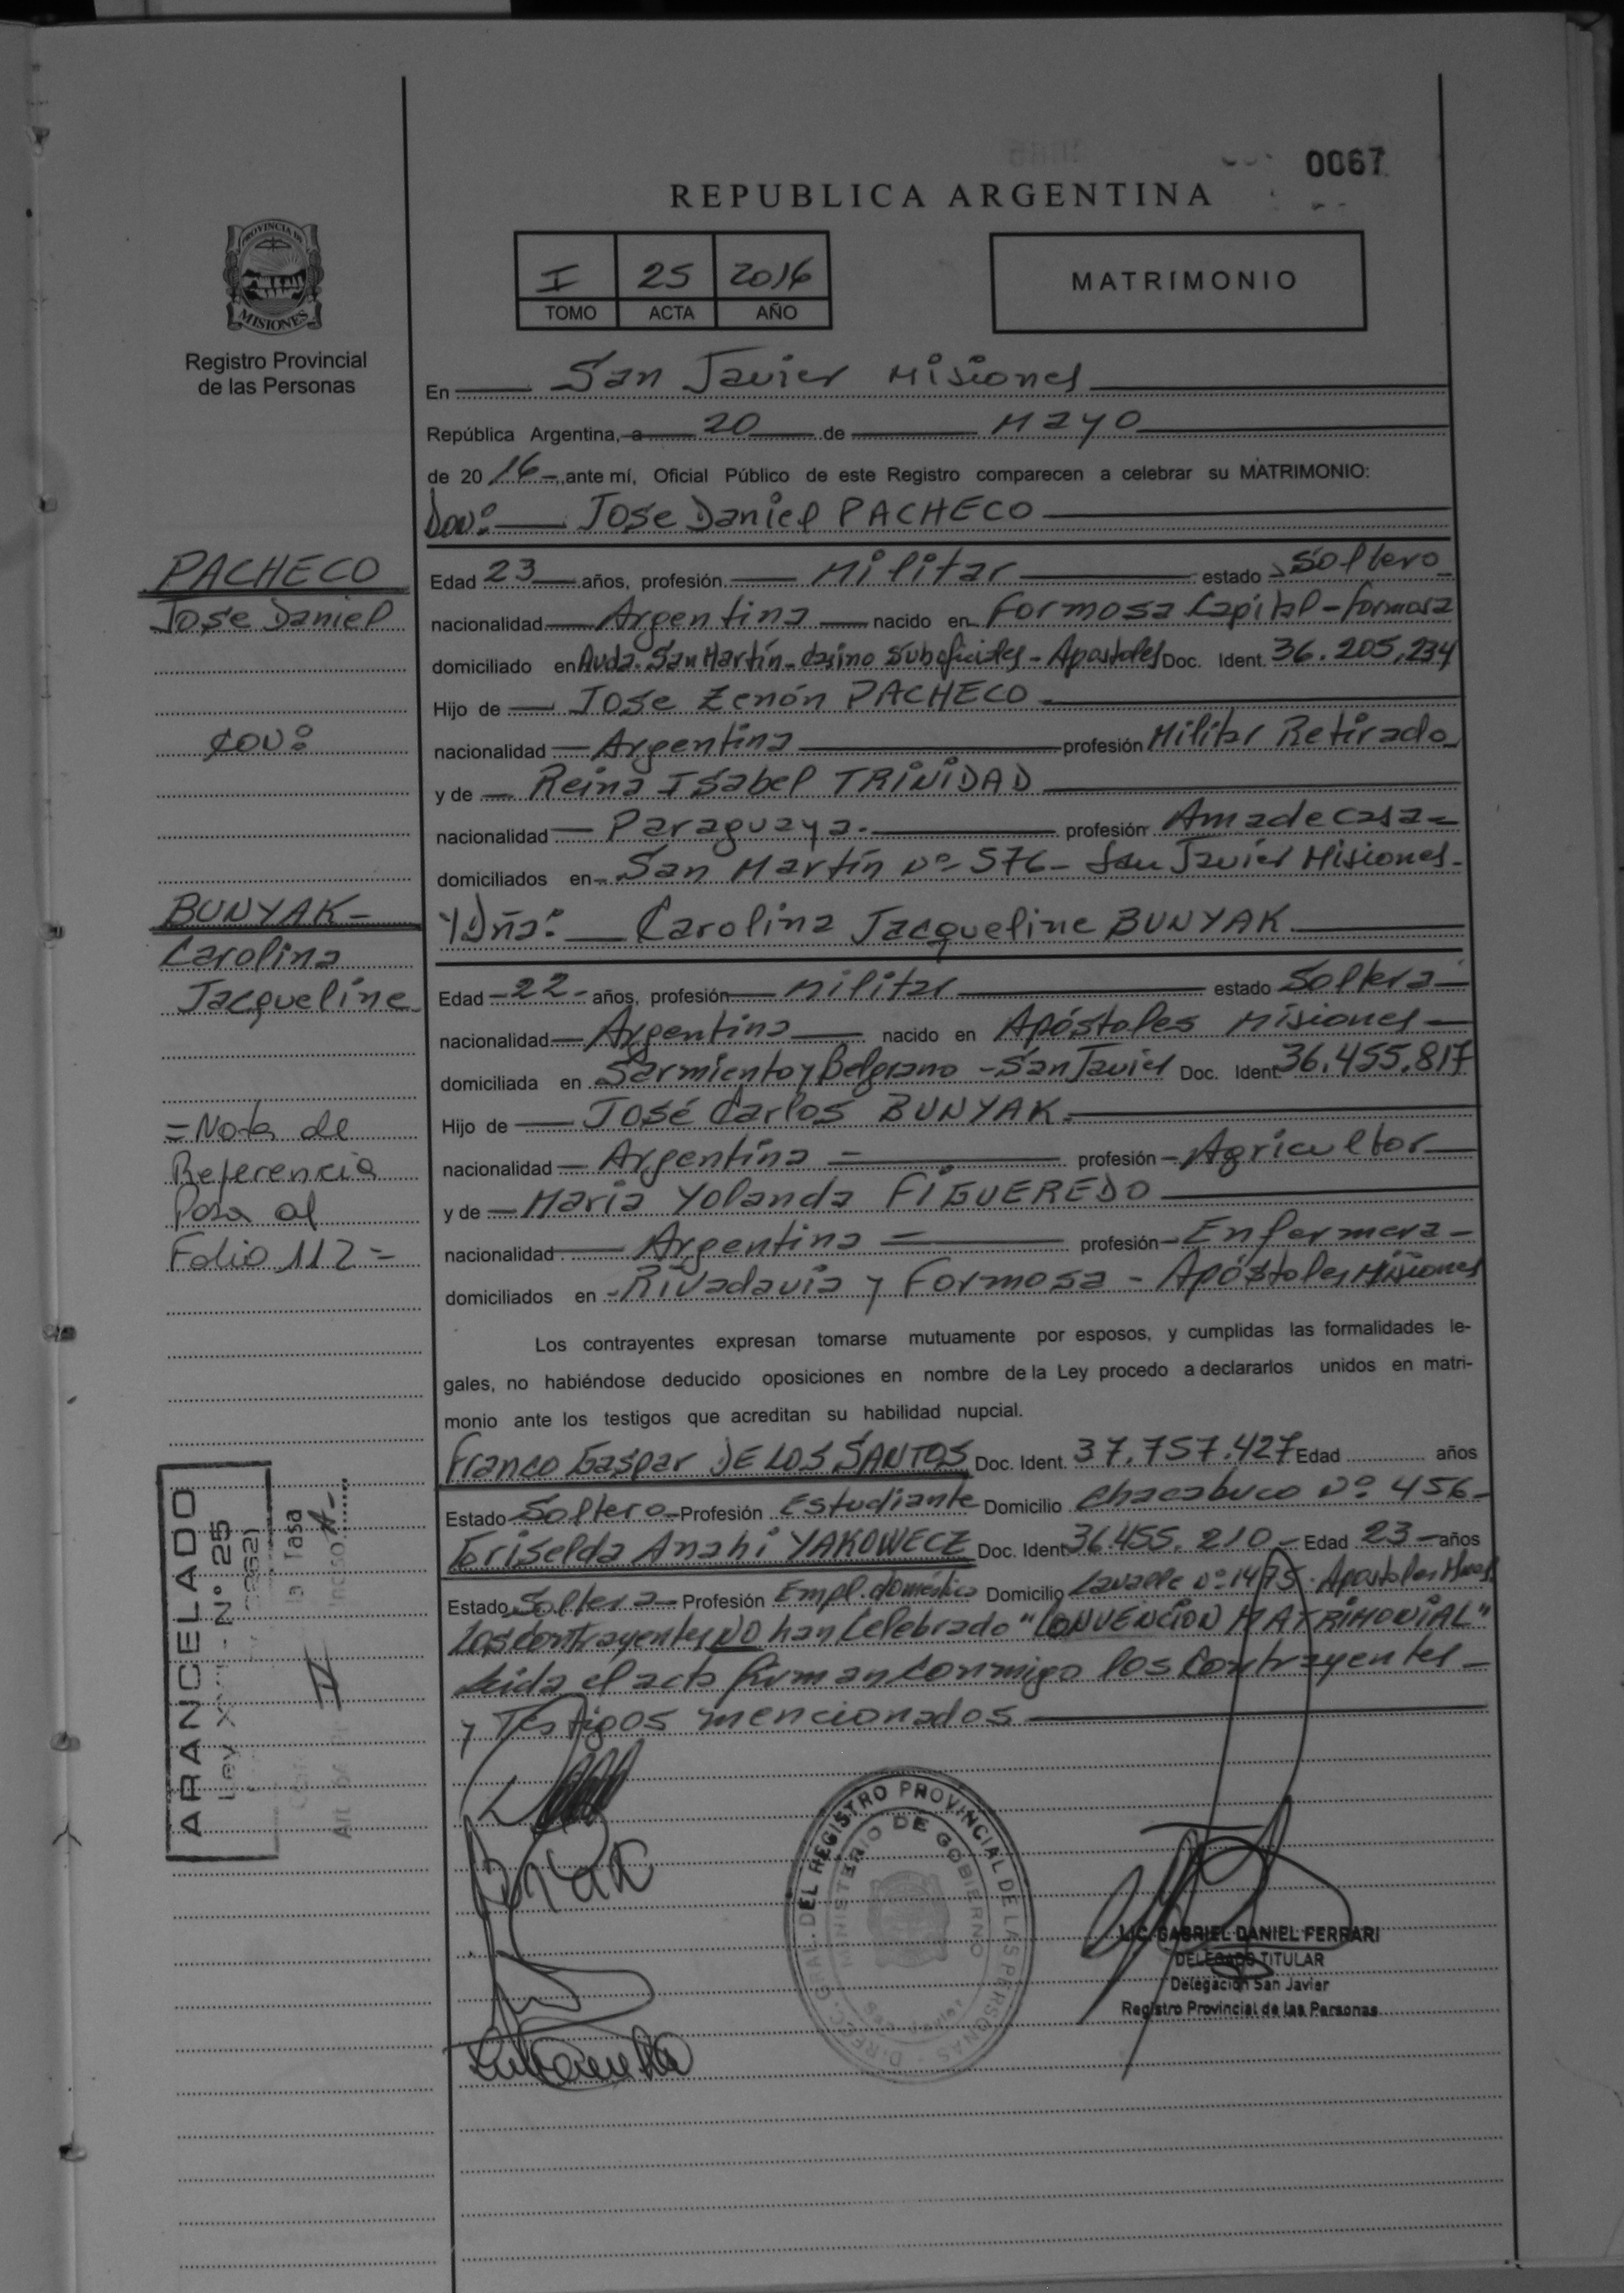 0067
REPUBLICA ARGENTINA
I 25 2016
TOMO ACTA AÑO
MATRIMONIO
PROVINCIA DE
MISIONES
Registro Provincial
de las Personas
En San Javier Misiones
República Argentina, a 20 de Mayo
de 2016 ante mí, Oficial Público de este Registro comparecen a celebrar su MATRIMONIO:
Don: Jose Daniel PACHECO
Edad 23 años, profesión Militar estado Soltero
nacionalidad Argentina nacido en Formosa Capital - Formosa
domiciliado en Avda. San Martín - Casino Suboficiales - Apostoles Doc. Ident. 36.205.234
Hijo de Jose Zenón PACHECO
nacionalidad Argentina profesión Militar Retirado
y de Reina Isabel TRINIDAD
nacionalidad Paraguaya. profesión Ama de casa
domiciliados en San Martín Nº 576 - San Javier Misiones.
Y Dña: Carolina Jacqueline BUNYAK
Edad 22 años, profesión Militar estado Soltera
nacionalidad Argentina nacido en Apóstoles Misiones
domiciliada en Sarmiento y Belgrano - San Javier Doc. Ident. 36.455.817
Hijo de José Carlos BUNYAK
nacionalidad Argentina profesión Agricultor
y de Maria Yolanda FIGUEREDO
nacionalidad Argentina profesión Enfermera
domiciliados en Rivadavia y Formosa - Apóstoles Misiones
Los contrayentes expresan tomarse mutuamente por esposos, y cumplidas las formalidades le-
gales, no habiéndose deducido oposiciones en nombre de la Ley procedo a declararlos unidos en matri-
monio ante los testigos que acreditan su habilidad nupcial.
Franco Gaspar DE LOS SANTOS Doc. Ident. 37.757.427 Edad años
Estado Soltero Profesión Estudiante Domicilio Chacabuco Nº 456
Griselda Anahi YAKOWECZ Doc. Ident 36.455.210 Edad 23 años
Estado Soltera Profesión Empl. doméstica Domicilio Lavalle Nº 1475. Apostoles Mnes.
Los contrayentes NO han Celebrado "CONVENCION MATRIMONIAL"
Leida el acta firman conmigo los contrayentes
y Testigos mencionados
PACHECO
Jose Daniel
con:
BUNYAK
Carolina
Jacqueline
= Nota de
Referencia
Pasa al
Folio 112 =
ARANCELADO
Ley Nº 25
la Tasa
Inciso
Art.
DIREC. GRAL. DEL REGISTRO PROVINCIAL DE LAS PERSONAS
MINISTERIO DE GOBIERNO
San Javier
LIC. GABRIEL DANIEL FERRARI
DELEGADO TITULAR
Delegación San Javier
Registro Provincial de las Personas